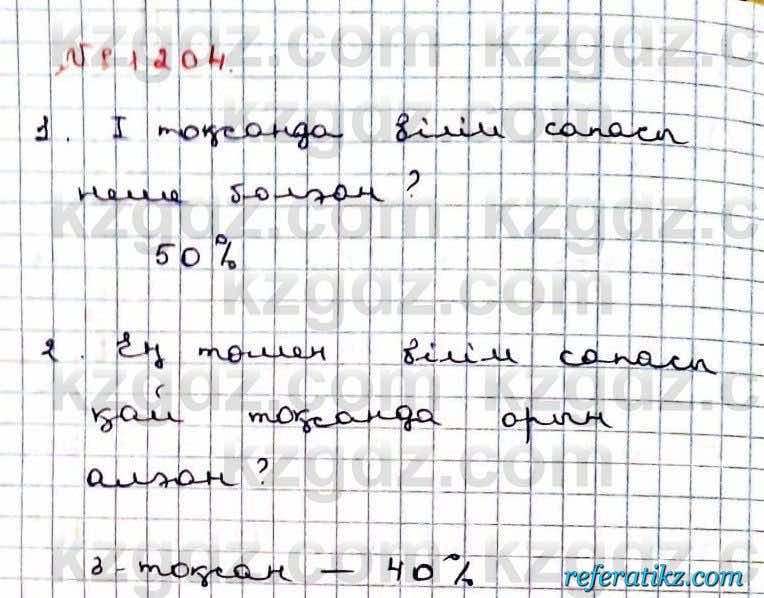 № 1204.
1. I тоқсанда білім сапасы
неше болған?
50%
2. Ең төмен білім сапасы
қай тоқсанда орын
алған?
3-тоқсан — 40%
kzgdz.com
referatikz.com